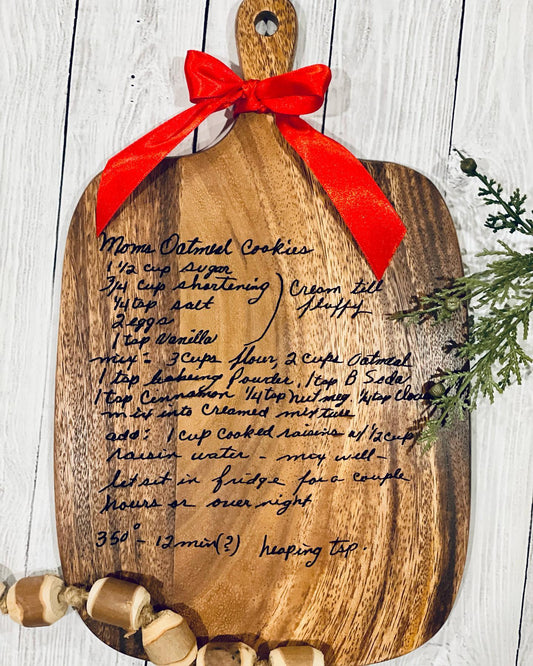 Moms Oatmeal Cookies
1 1/2 cup sugar
3/4 cup shortening } Cream till
1/4 tsp salt fluffy
2 eggs
1 tsp Vanilla
mix = 3 cups flour, 2 cups Oatmeal
1 tsp baking Powder, 1 tsp B Soda
1 tsp Cinnamon 1/4 tsp Nutmeg, 1/4 tsp
mix into creamed mixture
add: 1 cup cooked raisins w/ 1/2 cup
raisin water - mix well -
let sit in fridge for a couple
hours or over night
350° - 12 min (?) heaping tsp.